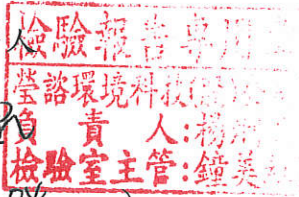 檢驗報告專用章
瑩諮環境科技
負責人:楊
檢驗室主管:鐘美
人